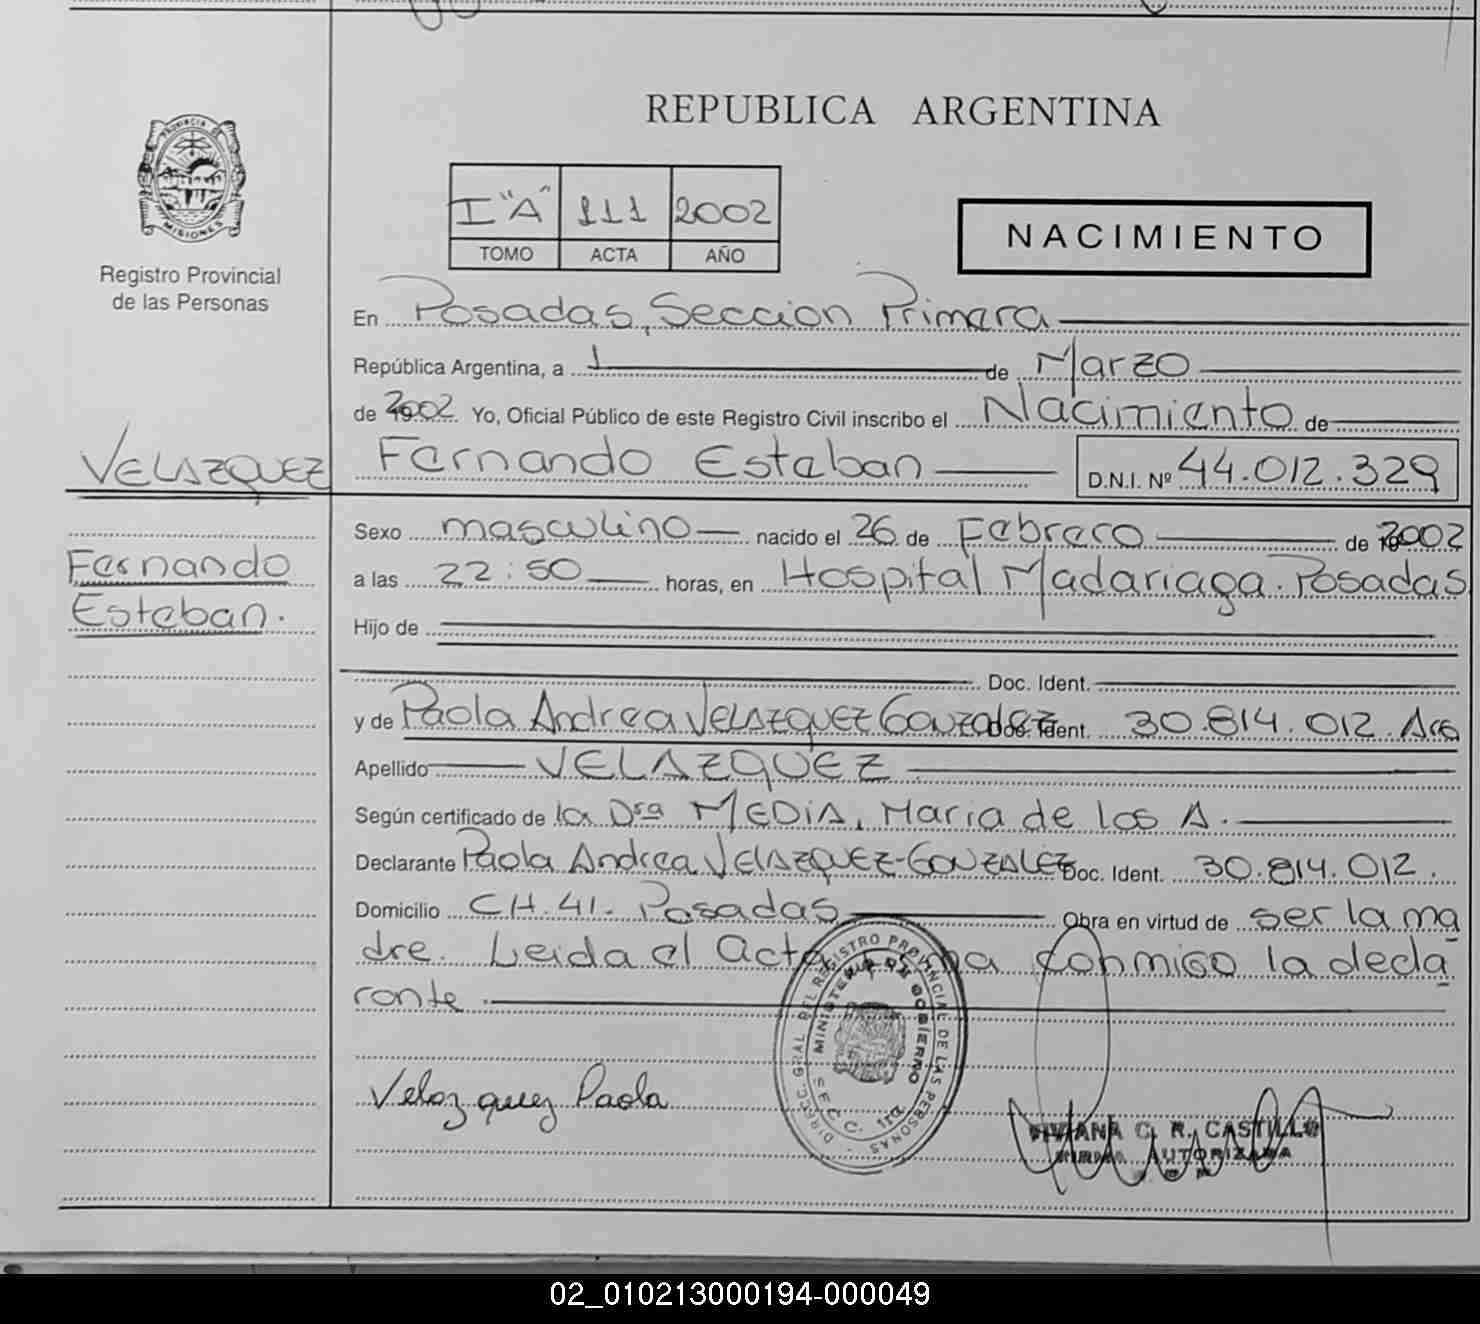 REPUBLICA ARGENTINA
PROVINCIA DE
MISIONES
Registro Provincial
de las Personas
I "A" 111 2002
TOMO ACTA AÑO
NACIMIENTO
En Posadas, Seccion Primera
República Argentina, a 1 de Marzo
de 2002. Yo, Oficial Público de este Registro Civil inscribo el Nacimiento de
VELAZQUEZ
Fernando Esteban D.N.I. Nº 44.012.329
Fernando
Esteban.
Sexo masculino nacido el 26 de Febrero de 2002
a las 22:50 horas, en Hospital Madariaga. Posadas
Hijo de
Doc. Ident.
y de Paola Andrea VELAZQUEZ Gonzalez Doc. Ident. 30.814.012. Arg
Apellido VELAZQUEZ
Según certificado de la Dra MEDIA, Maria de los A.
Declarante Paola Andrea VELAZQUEZ-GONZALEZ Doc. Ident. 30.814.012.
Domicilio CH. 41. Posadas Obra en virtud de ser la ma
dre. Leida el Acta conmigo la decla
rante.
DIRECC. GRAL DEL REGISTRO PROVINCIAL DE LAS PERSONAS
MINISTERIO DE GOBIERNO
SECC. 1ra
Velazquez Paola
VIVIANA C. R. CASTILLO
FIRMA AUTORIZADA
02_010213000194-000049